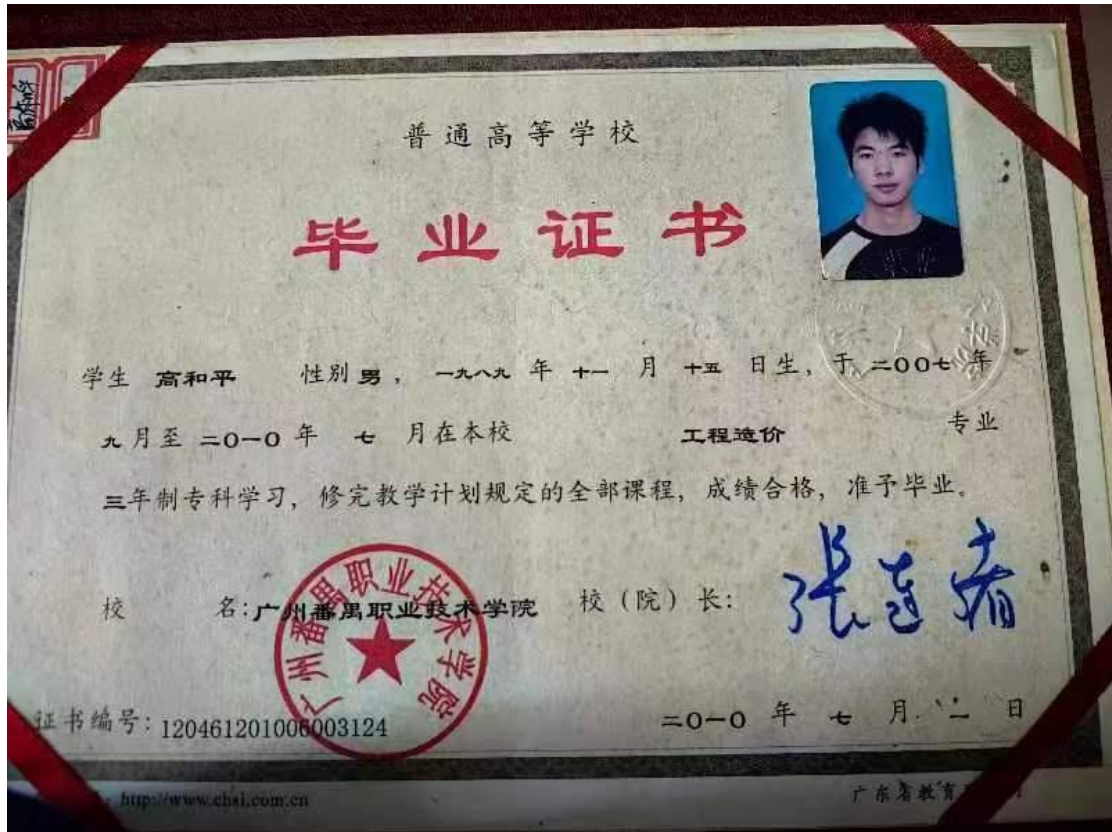 普通高等学校
毕业证书
学生 高和平 性别 男，一九八九 年 十一 月 十五 日生，于 二00七 年
九 月至 二0一0 年 七 月在本校 工程造价 专业
三年制专科学习，修完教学计划规定的全部课程，成绩合格，准予毕业。
校 名：广州番禺职业技术学院 校（院）长：
广州番禺职业技术学院
证书编号：120461201006003124 二0一0 年 七 月 一 日
http://www.chsi.com.cn 广东省教育